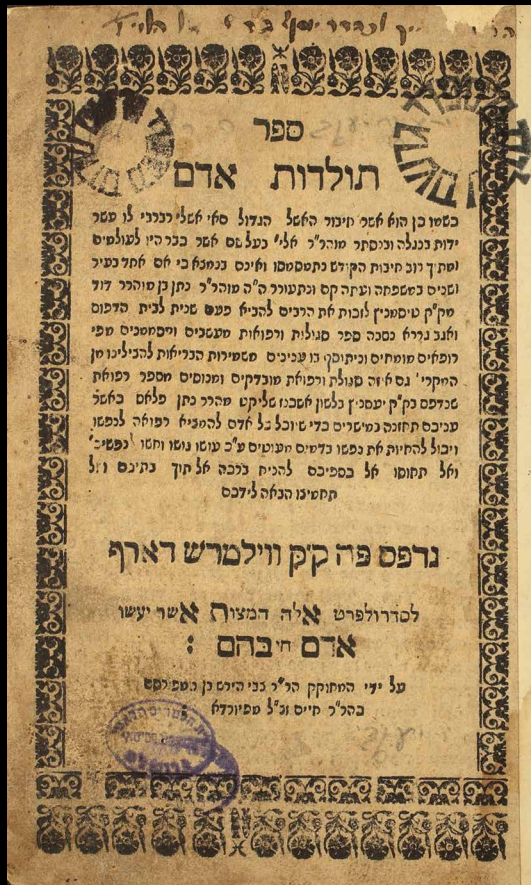 ספר
תולדות אדם
כשמו כן הוא אשר חיבור האשל הגדול סאי אשלי רברבי לו עשר
ידות בנגלה ובנסתר מוהר"ר אלי' בעל שם אשר כבר היו לעולמים
ומתוך רוב חיבת הקודש נתמסמסו ואינם בנמצא כי אם אחד בעיר
ושנים במשפחה ועתה קם ונתעורר ה"ה מוהר"ר נתן בן מוהרר דוד
מק"ק טיסמניץ לזכות את הרבים להביא פעם שנית לבית הדפוס
ואגב גררא נסבה ספר סגולות ורפואות מעשבים וסממנים מפי
רופאים מומחים וניתוסף בו ענינים משמירות הבריאות להבילינו מן
המקרי' גם איזה סגולת ורפואת מובדקים ומנוסים מספר רפואת
שנדפס בק"ק יעסניץ בלשון אשכנז שליקט מהרר נתן פלאם באשר
עניכם תחזנה במישרים כדי שיוכל כל אדם להמציא רפואה לנפשו
ויכול להחיות את נפשו בדמים מעוטים ע"כ עושו גושו וחשו
ואל תחוסו אל כספיכם להניח ברכה אל תוך בתיכם ואל
תחמיצו הבאה לידכם
נדפס פה ק"ק ווילמרש דארף
לסדר ולפרט אלה המצות אשר יעשו
אדם חי בהם :
על ידי המחוקק הר"ר צבי הירש בן
כהר"ר חיים זכ"ל מפיורדא